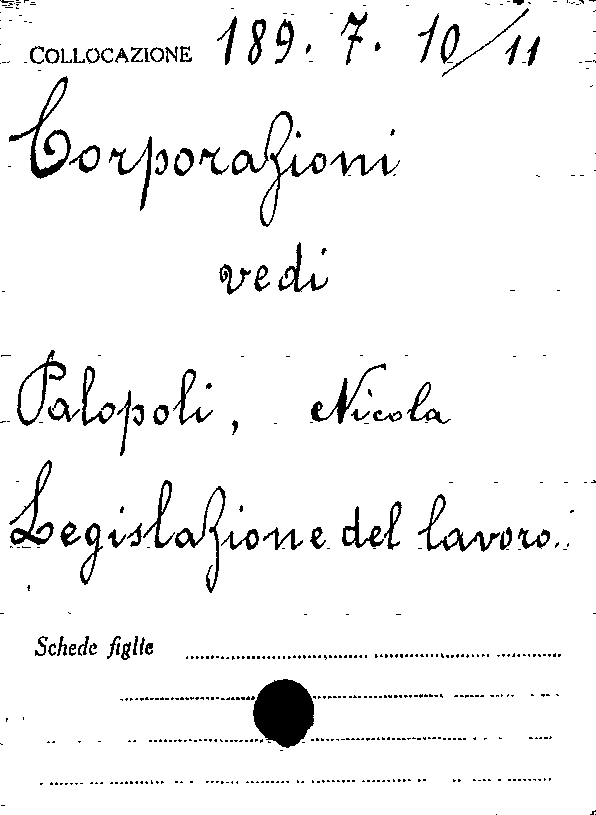 COLLOCAZIONE 189. 7. 10/11
Corporazioni
vedi
Palopoli, Nicola
Legislazione del lavoro.
Schede figlie